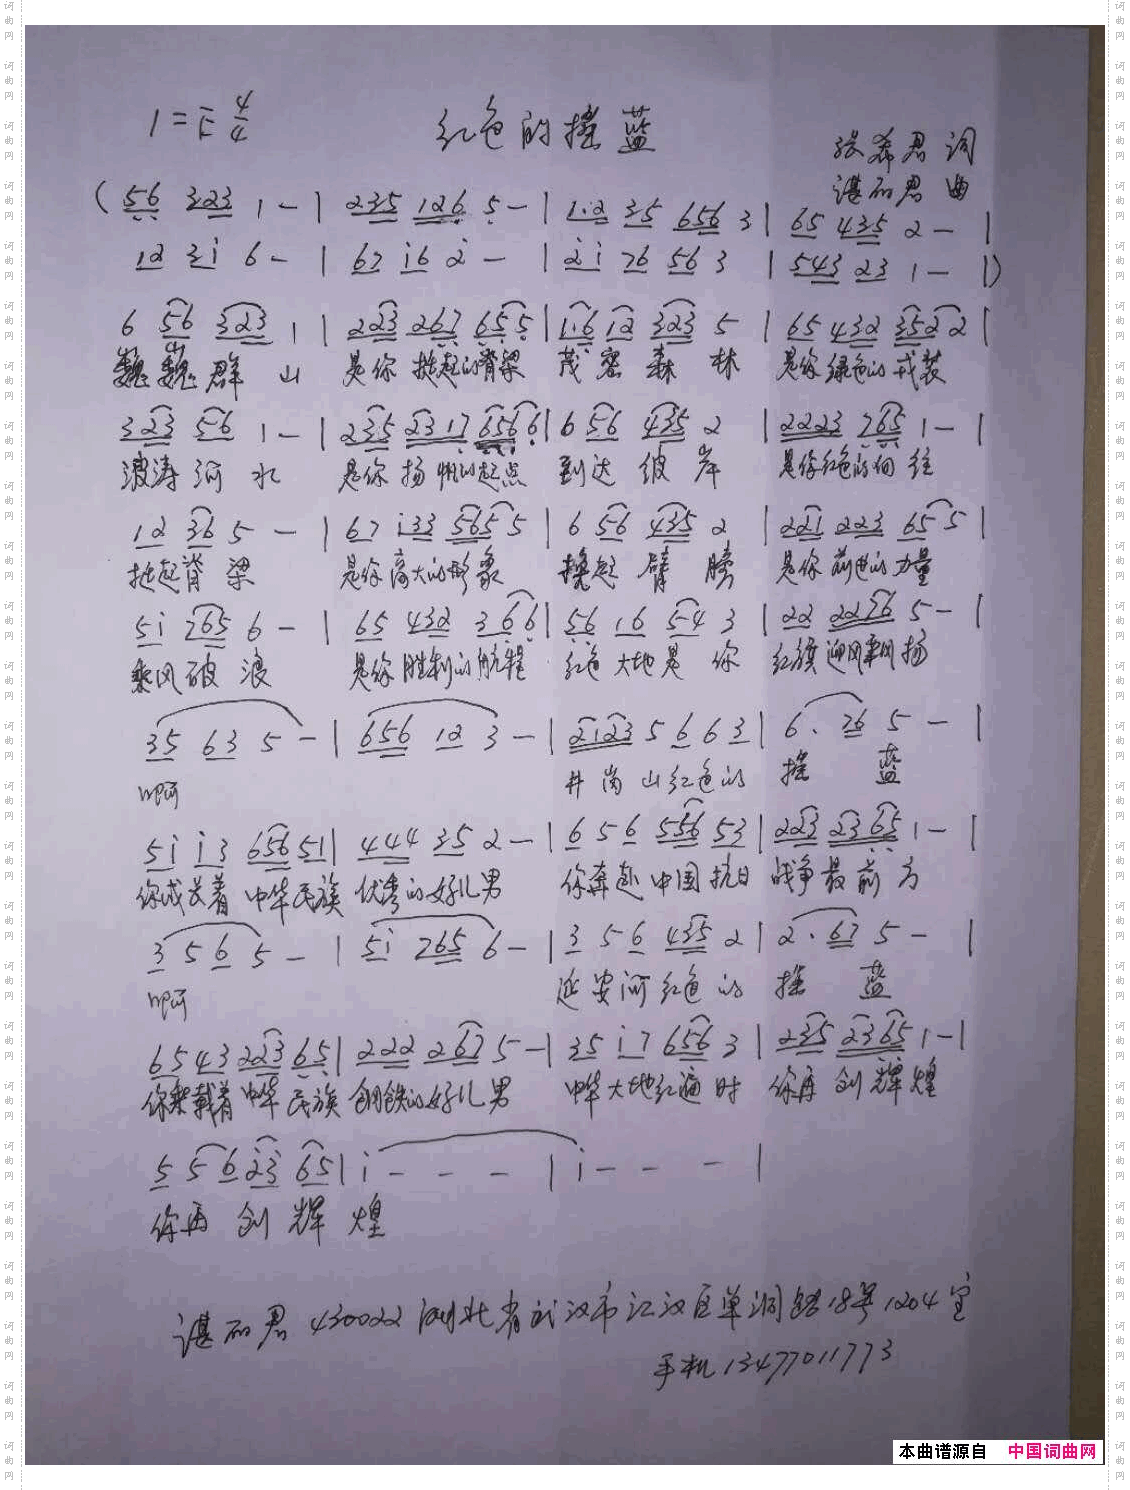 1=E 4/4 红色的摇蓝
张希君 词
谌丽君 曲
(56 323 1 - | 235 126 5 - | 1·2 35 656 3 | 65 435 2 - |
12 31 6 - | 67 i6 2 - | 2i 76 56 3 | 543 23 1 - |)
6 56 323 1 | 223 267 655 | 1·6 12 323 5 | 65 432 3522 |
巍巍群 山 是你挑起的脊梁 茂密森林 是你绿色的戎装
323 56 1 - | 235 2317 6566 | 6 56 435 2 | 2223 765 1 - |
波涛河水 是你扬帆的起点 到达彼岸 是你红色的向往
12 36 5 - | 67 i33 565 5 | 6 56 435 2 | 221 223 65 5 |
挑起脊梁 是你高大的形象 挽起臂膀 是你前进的力量
5i 765 6 - | 65 432 3 66 | 56 16 5-4 3 | 22 2276 5 - |
乘风破浪 是你胜利的航程 红色大地是你 红旗迎风飘扬
35 63 5 - | 656 12 3 - | 2123 5 6 6 3 | 6. 76 5 - |
啊 井岗山红色的 摇 蓝
5i i3 656 51 | 444 35 2 - | 6 5 6 556 53 | 223 2365 1 - |
你成长着中华民族 优秀的好儿男 你奔赴中国抗日 战争最前方
3 5 6 5 - | 5i 765 6 - | 3 5 6 435 2 | 2. 67 5 - |
啊 延安河红色的 摇 蓝
65 43 223 65 | 222 267 5 - | 35 i7 656 3 | 235 2365 1 - |
你乘载着中华民族 钢铁的好儿男 中华大地红遍时 你再创辉煌
5 56 23 65 | i - - - | i - - - |
你再创辉煌
谌丽君 430022 湖北省武汉市江汉区单洞路18号1204室
手机 13477011773
本曲谱源自 中国词曲网
词曲网